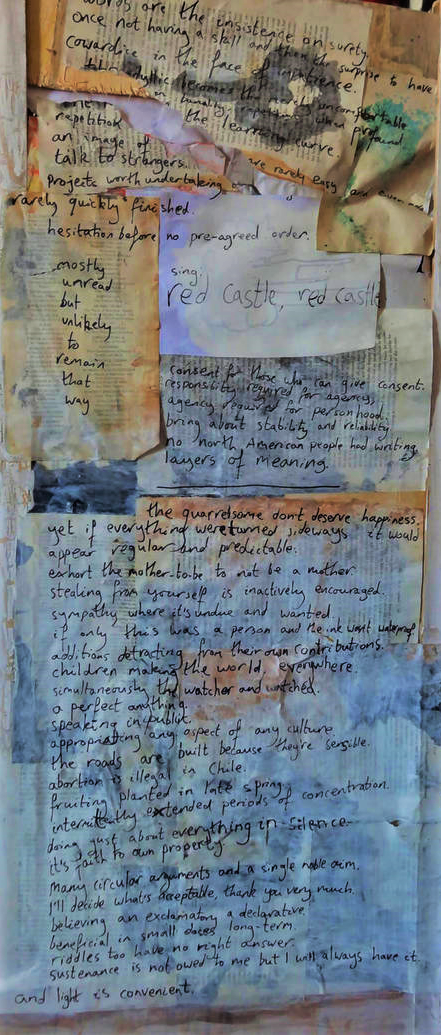 words are the insistence on surety.
once not having a skill and then the surprise to have
cowardice in the face of
idyllic becomes the merely uncomfortable
banality when prof
repetition the learning curve. profound
an image of
talk to strangers.
projects worth undertaking are rarely easy and even more
rarely quickly finished.
hesitation before no pre-agreed order.
mostly
unread
but
unlikely
to
remain
that
way
sing:
red castle, red castle
consent for those who can give consent.
responsibility required for agency,
agency required for personhood.
bring about stability and reliability
no north American people had writing
layers of meaning.
the quarrelsome don't deserve happiness.
yet if everything were turned sideways it would
appear regular and predictable.
exhort the mother-to-be to not be a mother
stealing from yourself is inactively encouraged.
sympathy where it's undue and wanted.
if only this was a person and the ink want waterproof
additions detracting from their own contributions.
children making the world, everywhere.
simultaneously the watcher and watched.
a perfect anything.
speaking in public.
appropriating any aspect of any culture.
the roads are built because they're sensible.
abortion is illegal in Chile.
fruiting planted in late spring
intermittently extended periods of concentration.
doing just about everything in silence.
it's faith to own property.
many circular arguments and a single noble aim.
I'll decide what's acceptable, thank you very much.
believing an exclamatory a declarative.
beneficial in small doses long-term.
riddles too have no right answer.
sustenance is not owed to me but I will always have it.
and light is convenient.